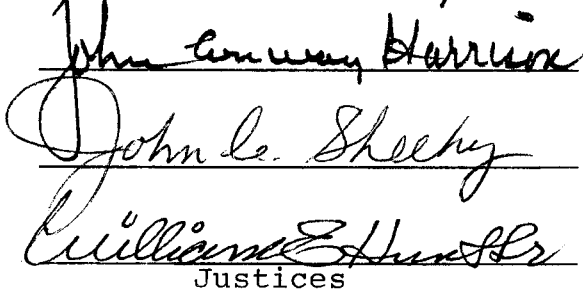 John Conway Harrison
John C. Sheehy
William E. Hunt Sr
Justices